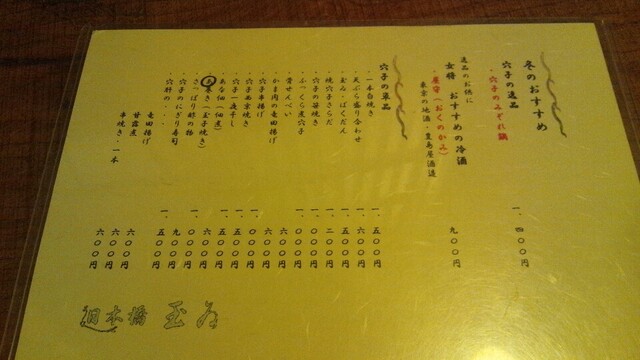 冬のおすすめ
穴子の逸品
・穴子のみぞれ鍋 一、四〇〇円
逸品のお供に
女将 おすすめの冷酒
・屋守(おくのかみ) 九〇〇円
東京の地酒・豊島屋酒造
穴子の単品
・一本白焼き 一、五〇〇円
・天ぷら盛り合わせ 一、六〇〇円
・玉ゐ・ばくだん 一、五〇〇円
・焼穴子さらだ 一、二〇〇円
・穴子の笹焼き 一、〇〇〇円
・ふっくら煮穴子 一、〇〇〇円
・骨せんべい 六〇〇円
・かま肉の竜田揚げ 六〇〇円
・穴子串揚げ
・穴子西京焼き
・穴子一夜干し
・あな佃(佃煮)
・あ巻き(玉子焼き)
・さっぱり酢の物
・穴子のにぎり寿司
・穴肝の・・・
竜田揚げ 六〇〇円
甘露煮 六〇〇円
串焼き・一本 六〇〇円
日本橋 玉ゐ